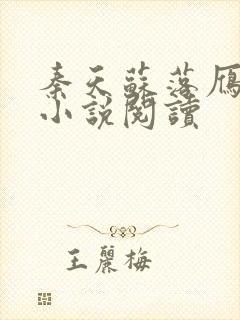 秦天蘇落雁
小說閱讀
王麗梅